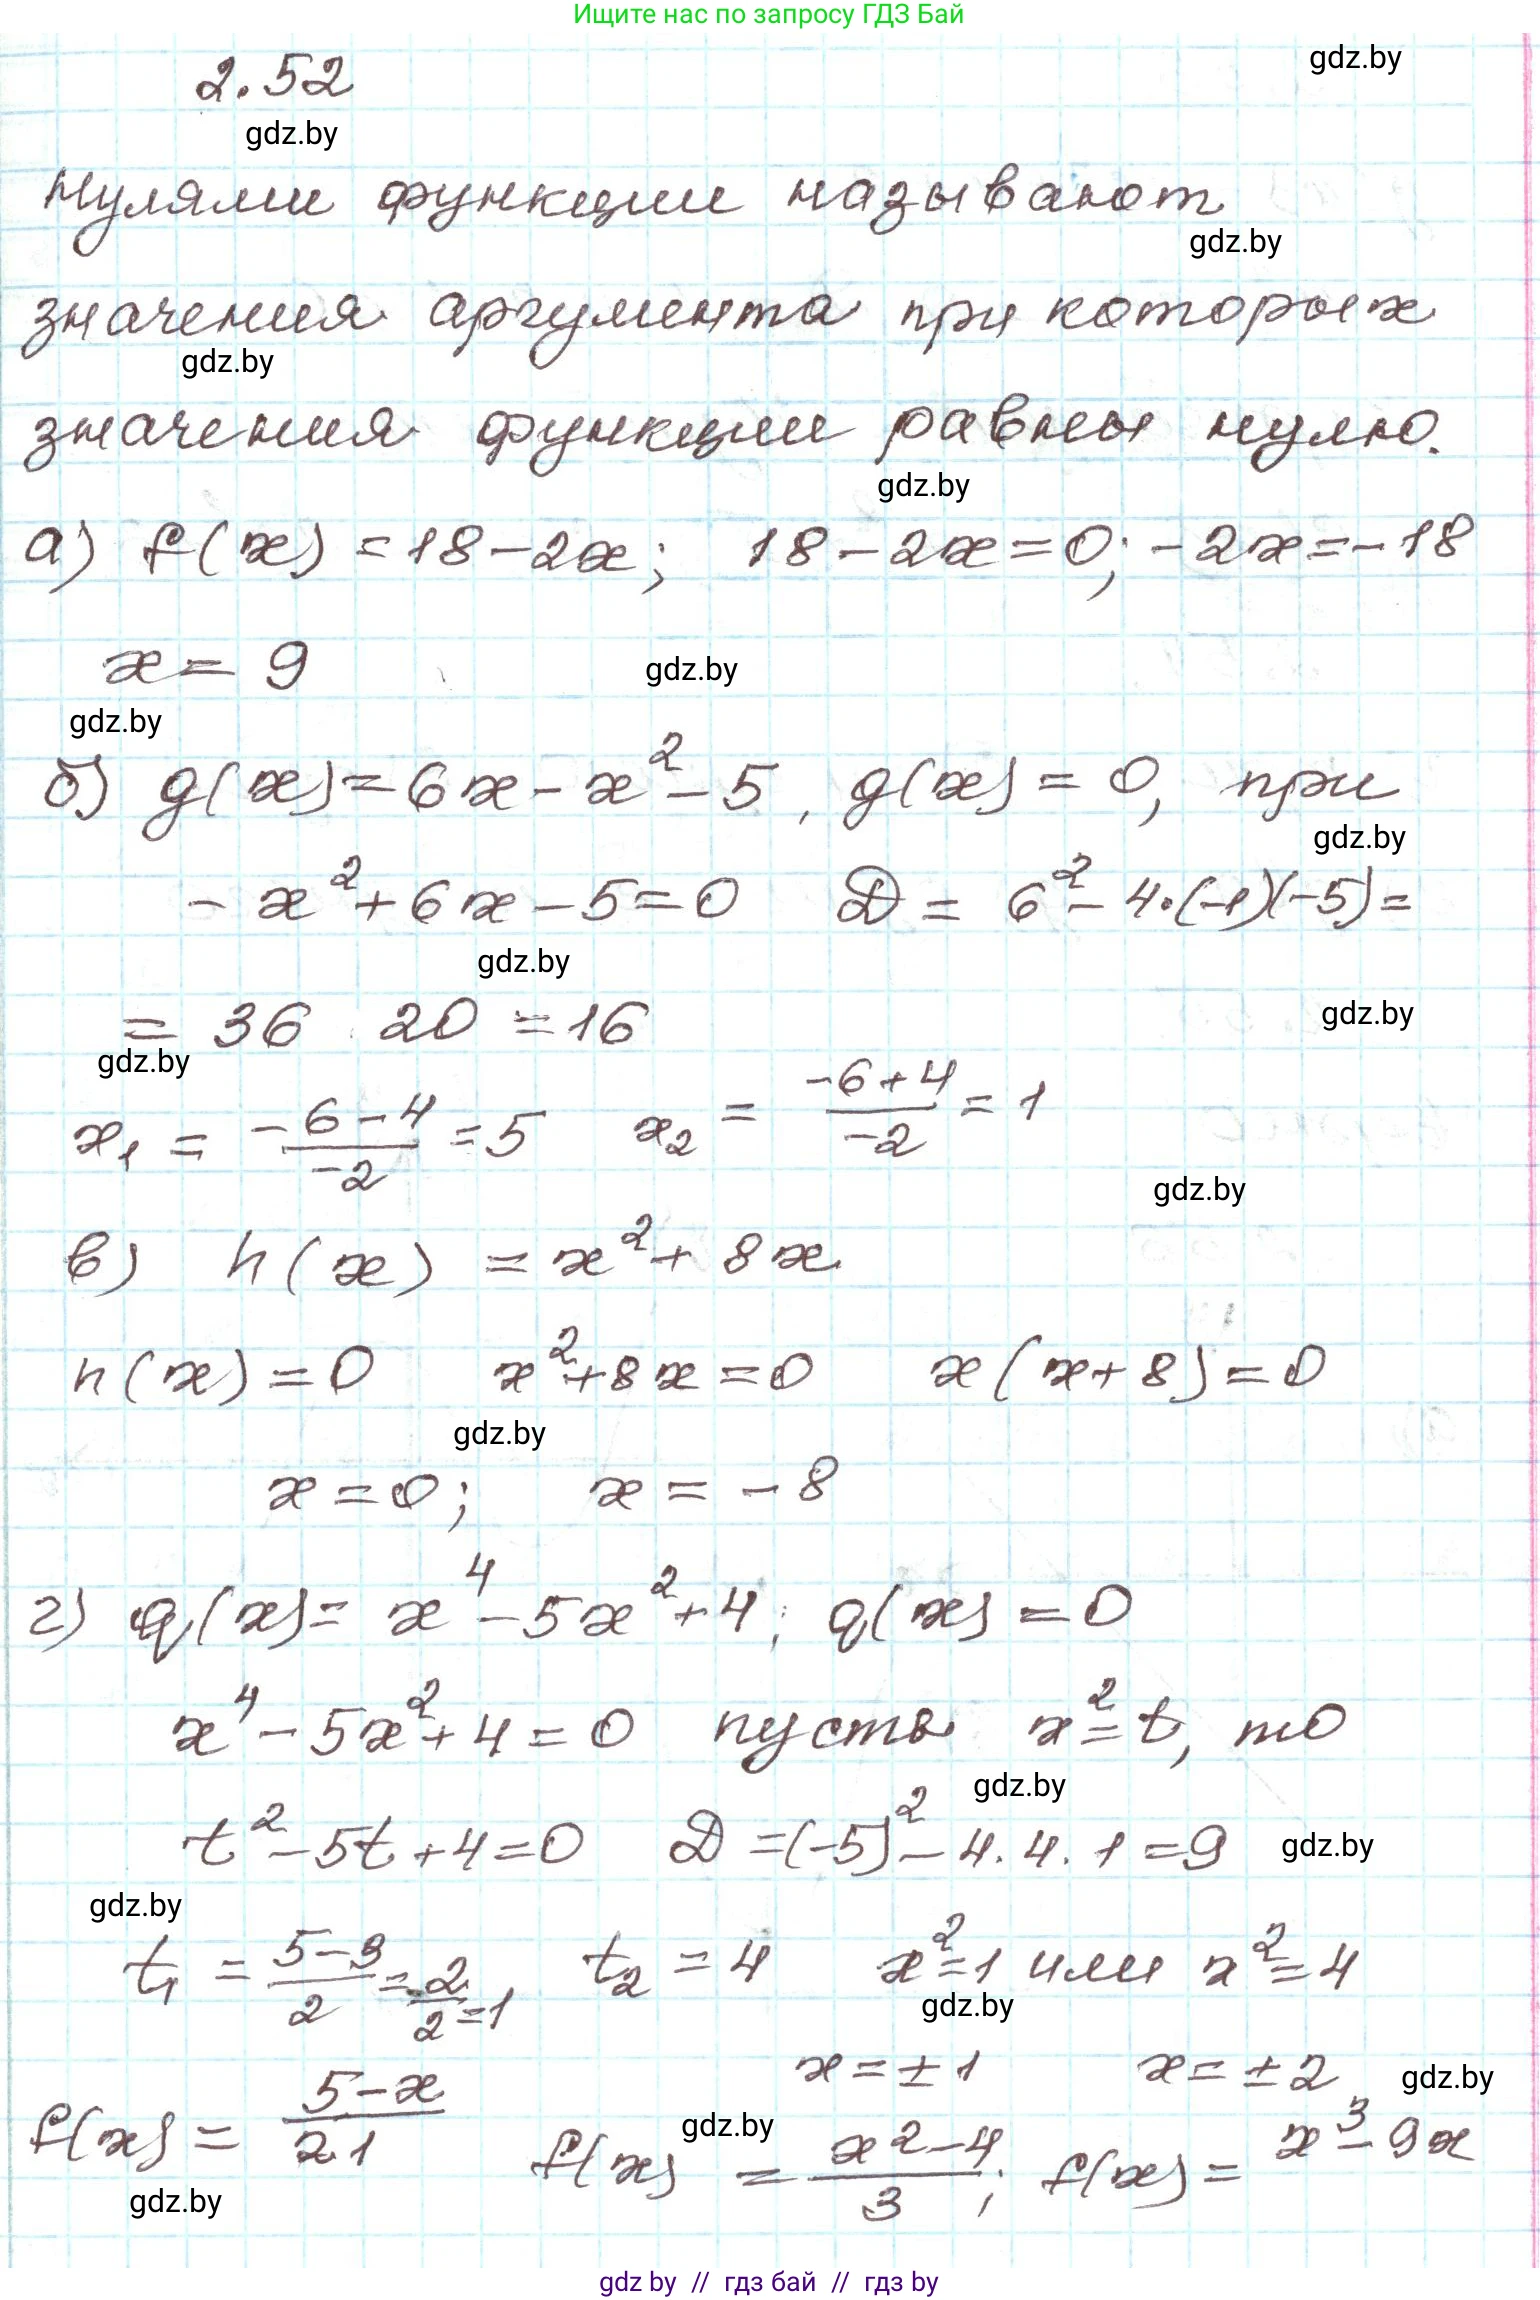 Ищите нас по запросу ГДЗ Бай
gdz.by
2.52
gdz.by
Нулями функции называют
gdz.by
значения аргумента при которых
gdz.by
значения функции равны нулю.
gdz.by
а) f(x) = 18 - 2x; 18 - 2x = 0; -2x = -18
x = 9
gdz.by
gdz.by
б) g(x) = 6x - x² - 5, g(x) = 0, при
gdz.by
- x² + 6x - 5 = 0 D = 6² - 4·(-1)(-5) =
gdz.by
= 36 20 = 16
gdz.by
gdz.by
x₁ = (-6-4)/(-2) = 5 x₂ = (-6+4)/(-2) = 1
gdz.by
в) h(x) = x² + 8x
h(x) = 0 x² + 8x = 0 x(x+8) = 0
gdz.by
x = 0; x = -8
г) q(x) = x⁴ - 5x² + 4; q(x) = 0
x⁴ - 5x² + 4 = 0 пусть x² = t, то
gdz.by
t² - 5t + 4 = 0 D = (-5)² - 4·4·1 = 9
gdz.by
gdz.by
t₁ = (5-3)/2 = 2/2 = 1 t₂ = 4 x² = 1 или x² = 4
gdz.by
x = ±1 x = ±2
gdz.by
gdz.by
f(x) = (5-x)/21 f(x) = (x²-4)/3; f(x) = x³ - 9x
gdz.by
gdz by // гдз бай // гдз by